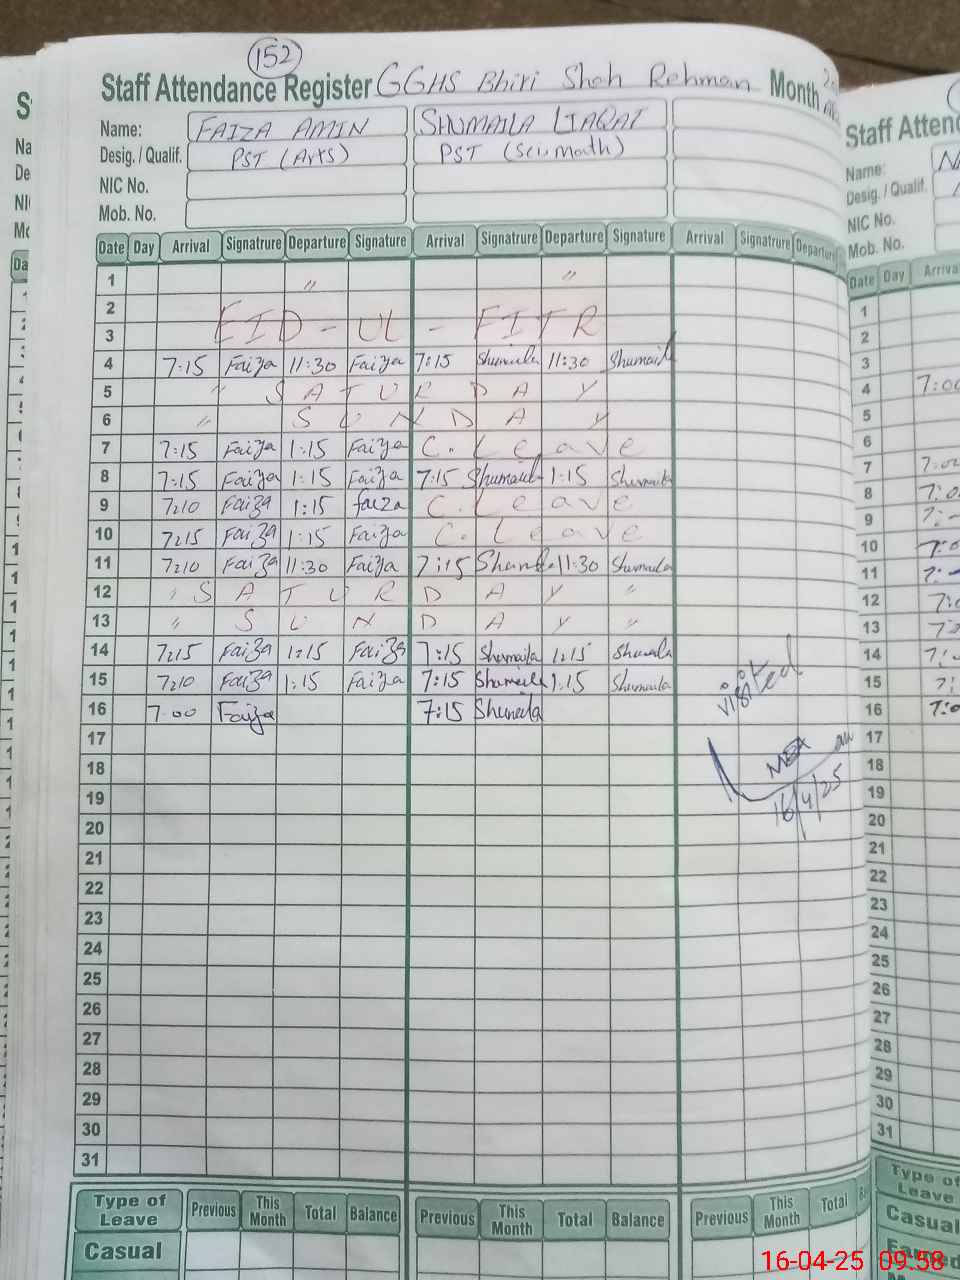 152
Staff Attendance Register GGHS Bhiri Shah Rehman Month
Name: FAIZA AMIN SHUMAILA LIAQAT
Desig. / Qualif. PST (Arts) PST (Sci-math)
NIC No.
Mob. No.
Date Day Arrival Signatrure Departure Signature Arrival Signatrure Departure Signature Arrival Signatrure Departure
1 " "
2
EID - UL - FITR
3
4 7:15 Faiza 11:30 Faiza 7:15 Shumaila 11:30 Shumaila
5 " SATURDAY
6 " SUNDAY
7 7:15 Faiza 1:15 Faiza C. Leave
8 7:15 Faiza 1:15 Faiza 7:15 Shumaila 1:15 Shumaila
9 7:10 Faiza 1:15 faiza C. Leave
10 7:15 Faiza 1:15 Faiza C. Leave
11 7:10 Faiza 11:30 Faiza 7:15 Shumaila 11:30 Shumaila
12 " SATURDAY "
13 " SUNDAY "
14 7:15 Faiza 1:15 Faiza 7:15 Shumaila 1:15 Shumaila
15 7:10 Faiza 1:15 Faiza 7:15 Shumaila 1:15 Shumaila
16 7:00 Faiza 7:15 Shumaila
visited
16/4/25
17
18
19
20
21
22
23
24
25
26
27
28
29
30
31
Type of Leave Previous This Month Total Balance Previous This Month Total Balance Previous This Month Total
Casual
Staff Atten
Name:
Desig. / Qualif.
NIC No.
Mob. No.
Date Day Arriva
1
2
3
4 7:00
5
6
7
8
9
10
11
12
13
14
15
16
17
18
19
20
21
22
23
24
25
26
27
28
29
30
31
Type of
Leave
Casual
16-04-25 09:58